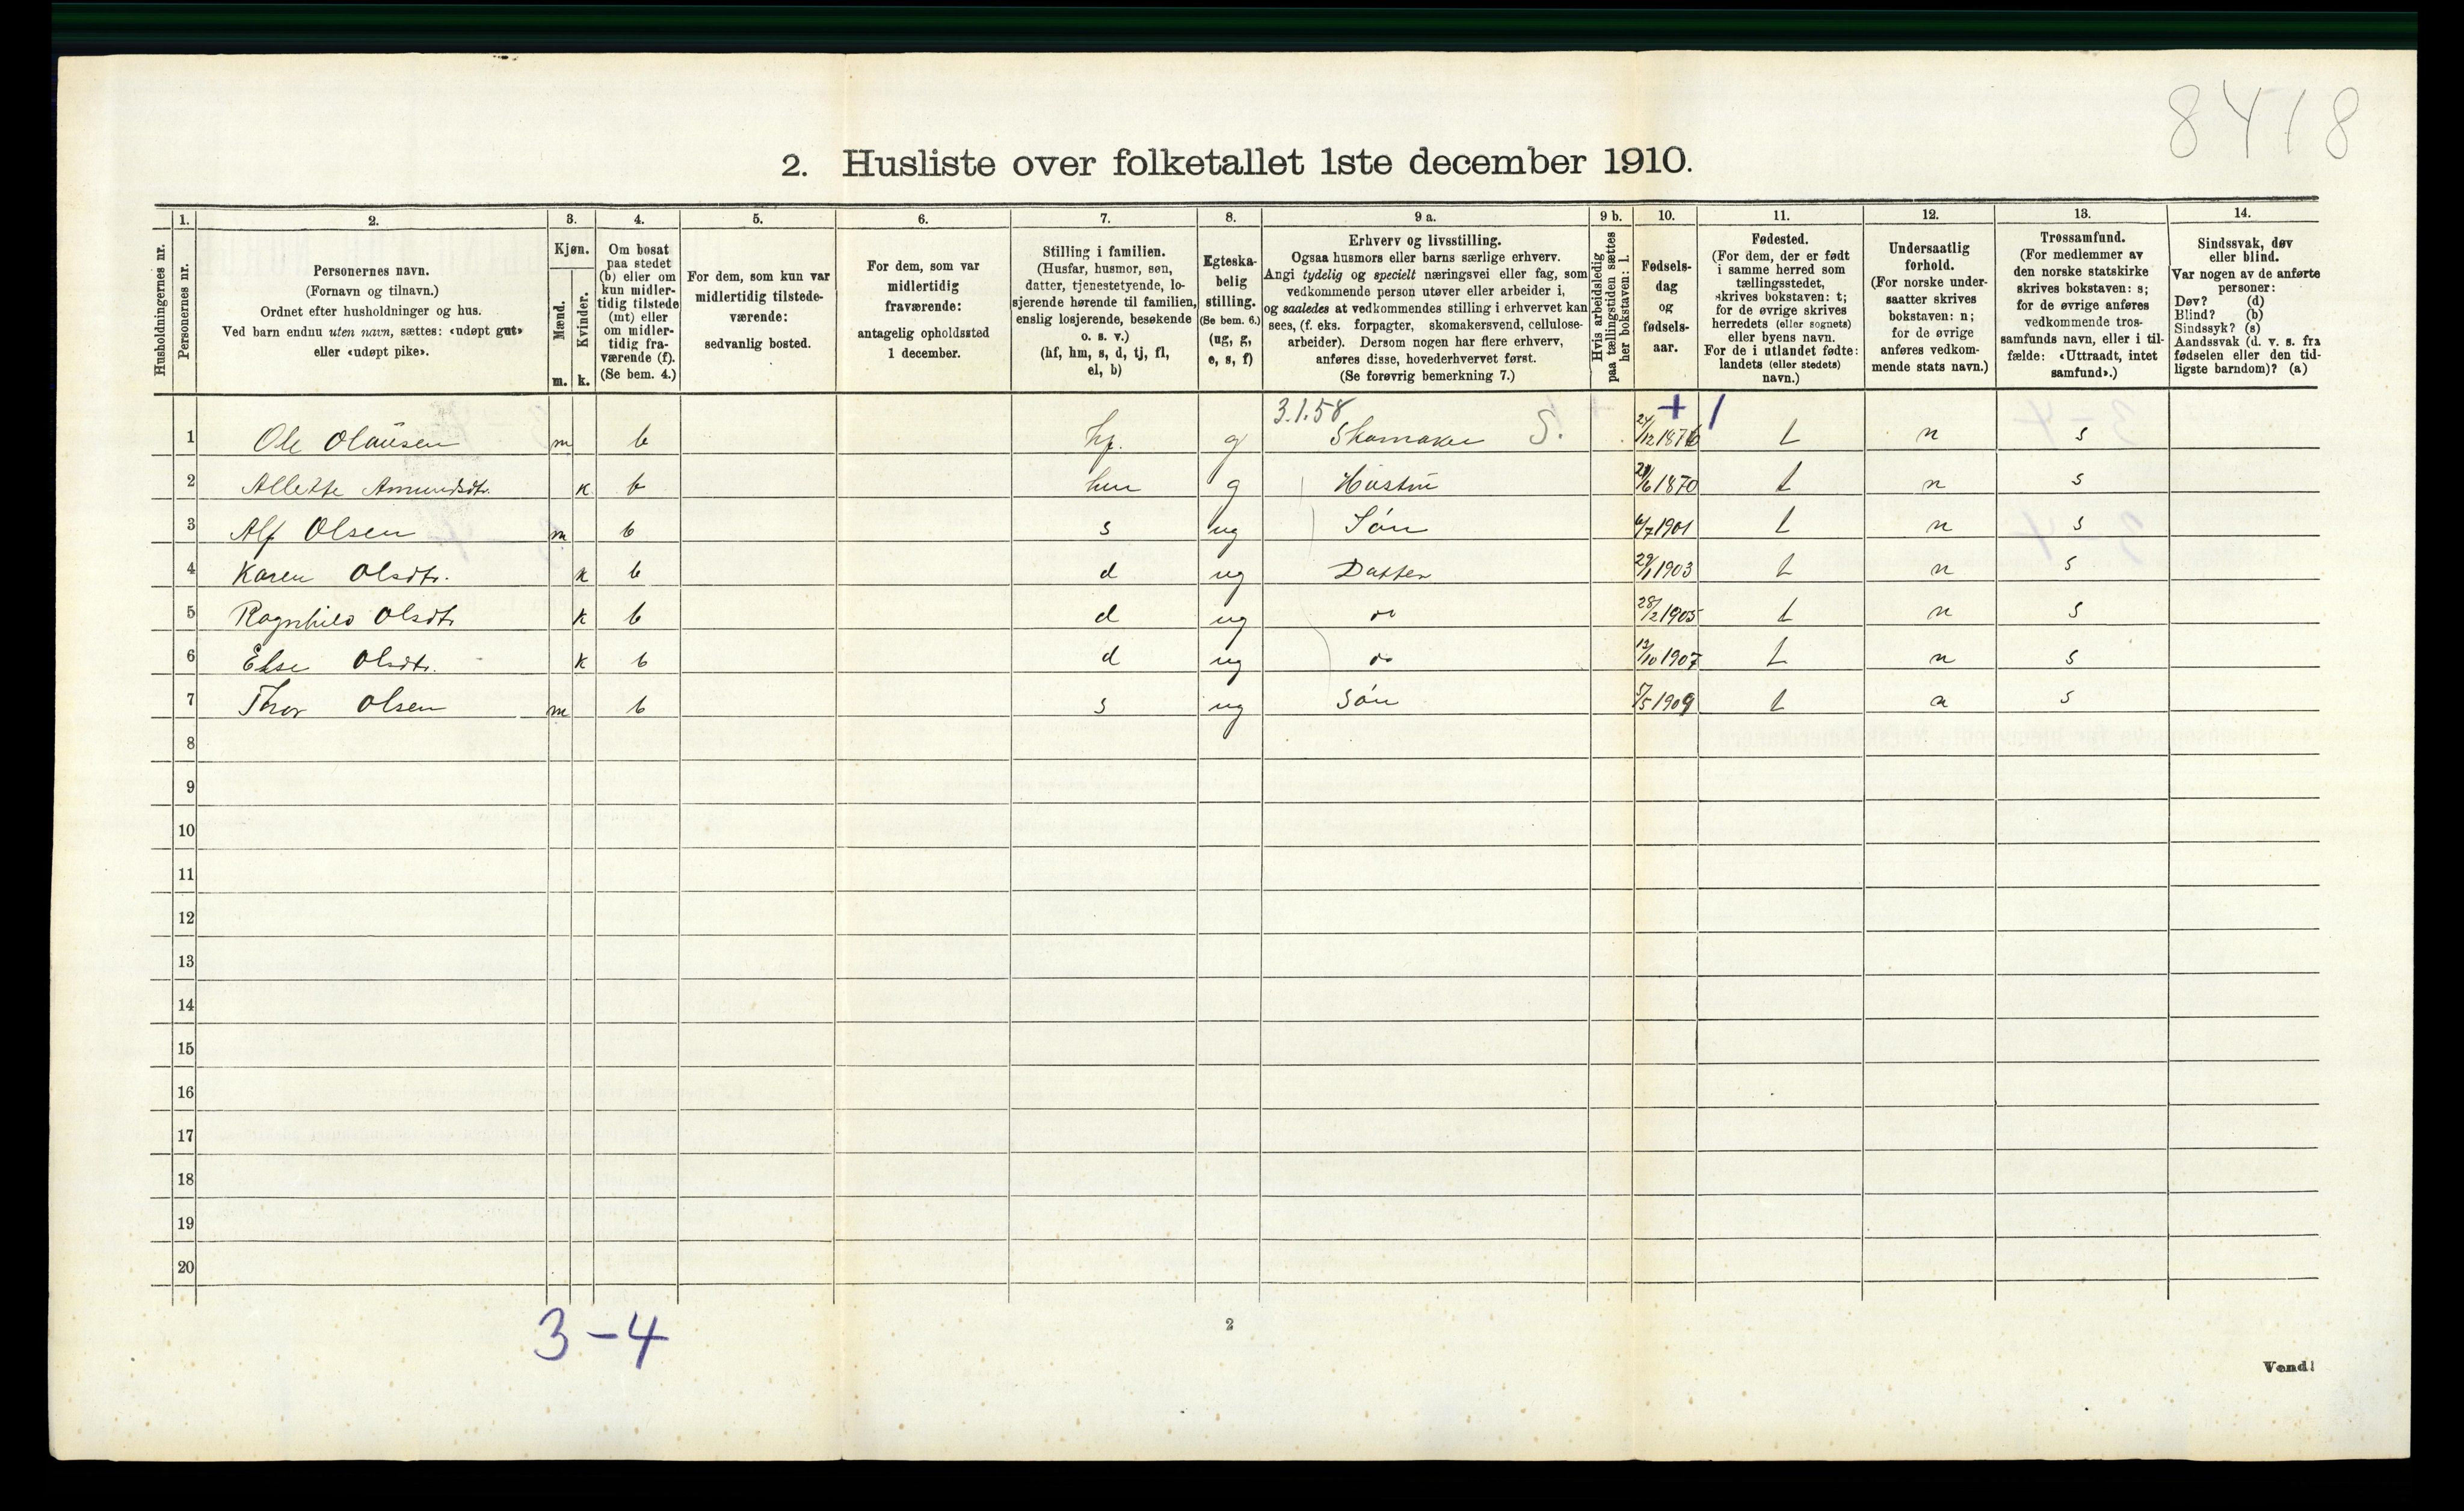 8418
2. Husliste over folketallet 1ste december 1910.
Husholdningernes nr.
1.
Personernes nr.
2.
Personernes navn.
(Fornavn og tilnavn.)
Ordnet efter husholdninger og hus.
Ved barn endnu uten navn, sættes: «udøpt gut»
eller «udøpt pike».
3.
Kjøn.
Mænd.
Kvinder.
m. k.
4.
Om bosat
paa stedet
(b) eller om
kun midler-
tidig tilstede
(mt) eller
om midler-
tidig fra-
værende (f).
(Se bem. 4.)
5.
For dem, som kun var
midlertidig tilstede-
værende:
sedvanlig bosted.
6.
For dem, som var
midlertidig
fraværende:
antagelig opholdssted
1 december.
7.
Stilling i familien.
(Husfar, husmor, søn,
datter, tjenestetyende, lo-
sjerende hørende til familien,
enslig losjerende, besøkende
o. s. v.)
(hf, hm, s, d, tj, fl,
el, b)
8.
Egteska-
belig
stilling.
(Se bem. 6.)
(ug, g,
e, s, f)
9 a.
Erhverv og livsstilling.
Ogsaa husmors eller barns særlige erhverv.
Angi tydelig og specielt næringsvei eller fag, som
vedkommende person utøver eller arbeider i,
og saaledes at vedkommendes stilling i erhvervet kan
sees, (f. eks. forpagter, skomakersvend, cellulose-
arbeider). Dersom nogen har flere erhverv,
anføres disse, hovederhvervet først.
(Se forøvrig bemerkning 7.)
9 b.
Hvis arbeidsledig
paa tællingstiden sættes
her bokstaven: l.
10.
Fødsels-
dag
og
fødsels-
aar.
11.
Fødested.
(For dem, der er født
i samme herred som
tællingsstedet,
skrives bokstaven: t;
for de øvrige skrives
herredets (eller sognets)
eller byens navn.
For de i utlandet fødte:
landets (eller stedets)
navn.)
12.
Undersaatlig
forhold.
(For norske under-
saatter skrives
bokstaven: n;
for de øvrige
anføres vedkom-
mende stats navn.)
13.
Trossamfund.
(For medlemmer av
den norske statskirke
skrives bokstaven: s;
for de øvrige anføres
vedkommende tros-
samfunds navn, eller i til-
fælde: «Uttraadt, intet
samfund».)
14.
Sindssvak, døv
eller blind.
Var nogen av de anførte
personer:
Døv? (d)
Blind? (b)
Sindssyk? (s)
Aandssvak (d. v. s. fra
fødselen eller den tid-
ligste barndom)? (a)
3.1.58 + 1
1 Ole Olausen m b hf. g Skomaker S. 1876 t n s
2 Allette Amundsdtr. k b hm g Hustru 1870 t n s
3 Alf Olsen m b s ug Søn 6/7 1901 t n s
4 Karen Olsdtr. k b d ug Datter 29/1 1903 t n s
5 Ragnhild Olsdtr k b d ug do 28/2 1905 t n s
6 Else Olsdtr. k b d ug do 12/10 1907 t n s
7 Thor Olsen m b s ug Søn 5/5 1909 t n s
8
9
10
11
12
13
14
15
16
17
18
19
20
3-4
2
Vend!